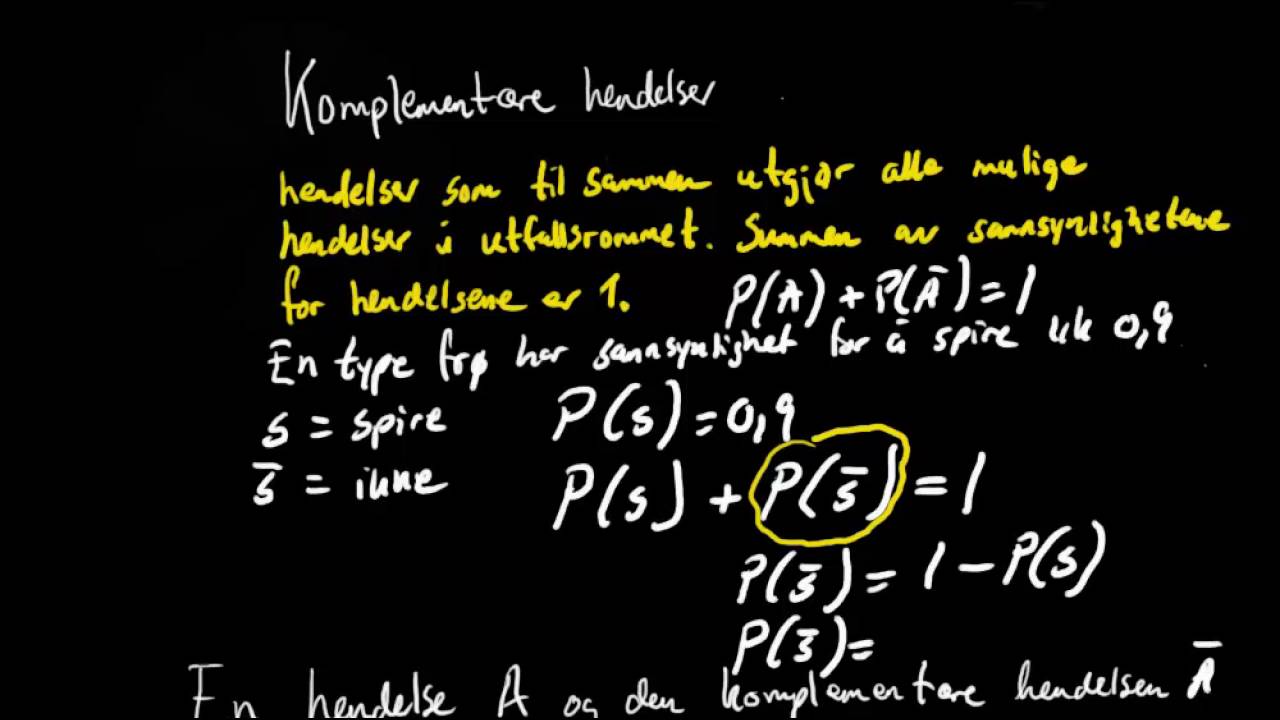 Komplementære hendelser
hendelser som til sammen utgjør alle mulige
hendelser i utfallsrommet. Summen av sannsynlighetene
for hendelsene er 1. P(A) + P(Ā) = 1
En type frø har sannsynlighet for å spire lik 0,9
s = spire P(s) = 0,9
s̄ = ikke P(s) + P(s̄) = 1
P(s̄) = 1 - P(s)
P(s̄) =
En hendelse A og den komplementære hendelsen Ā